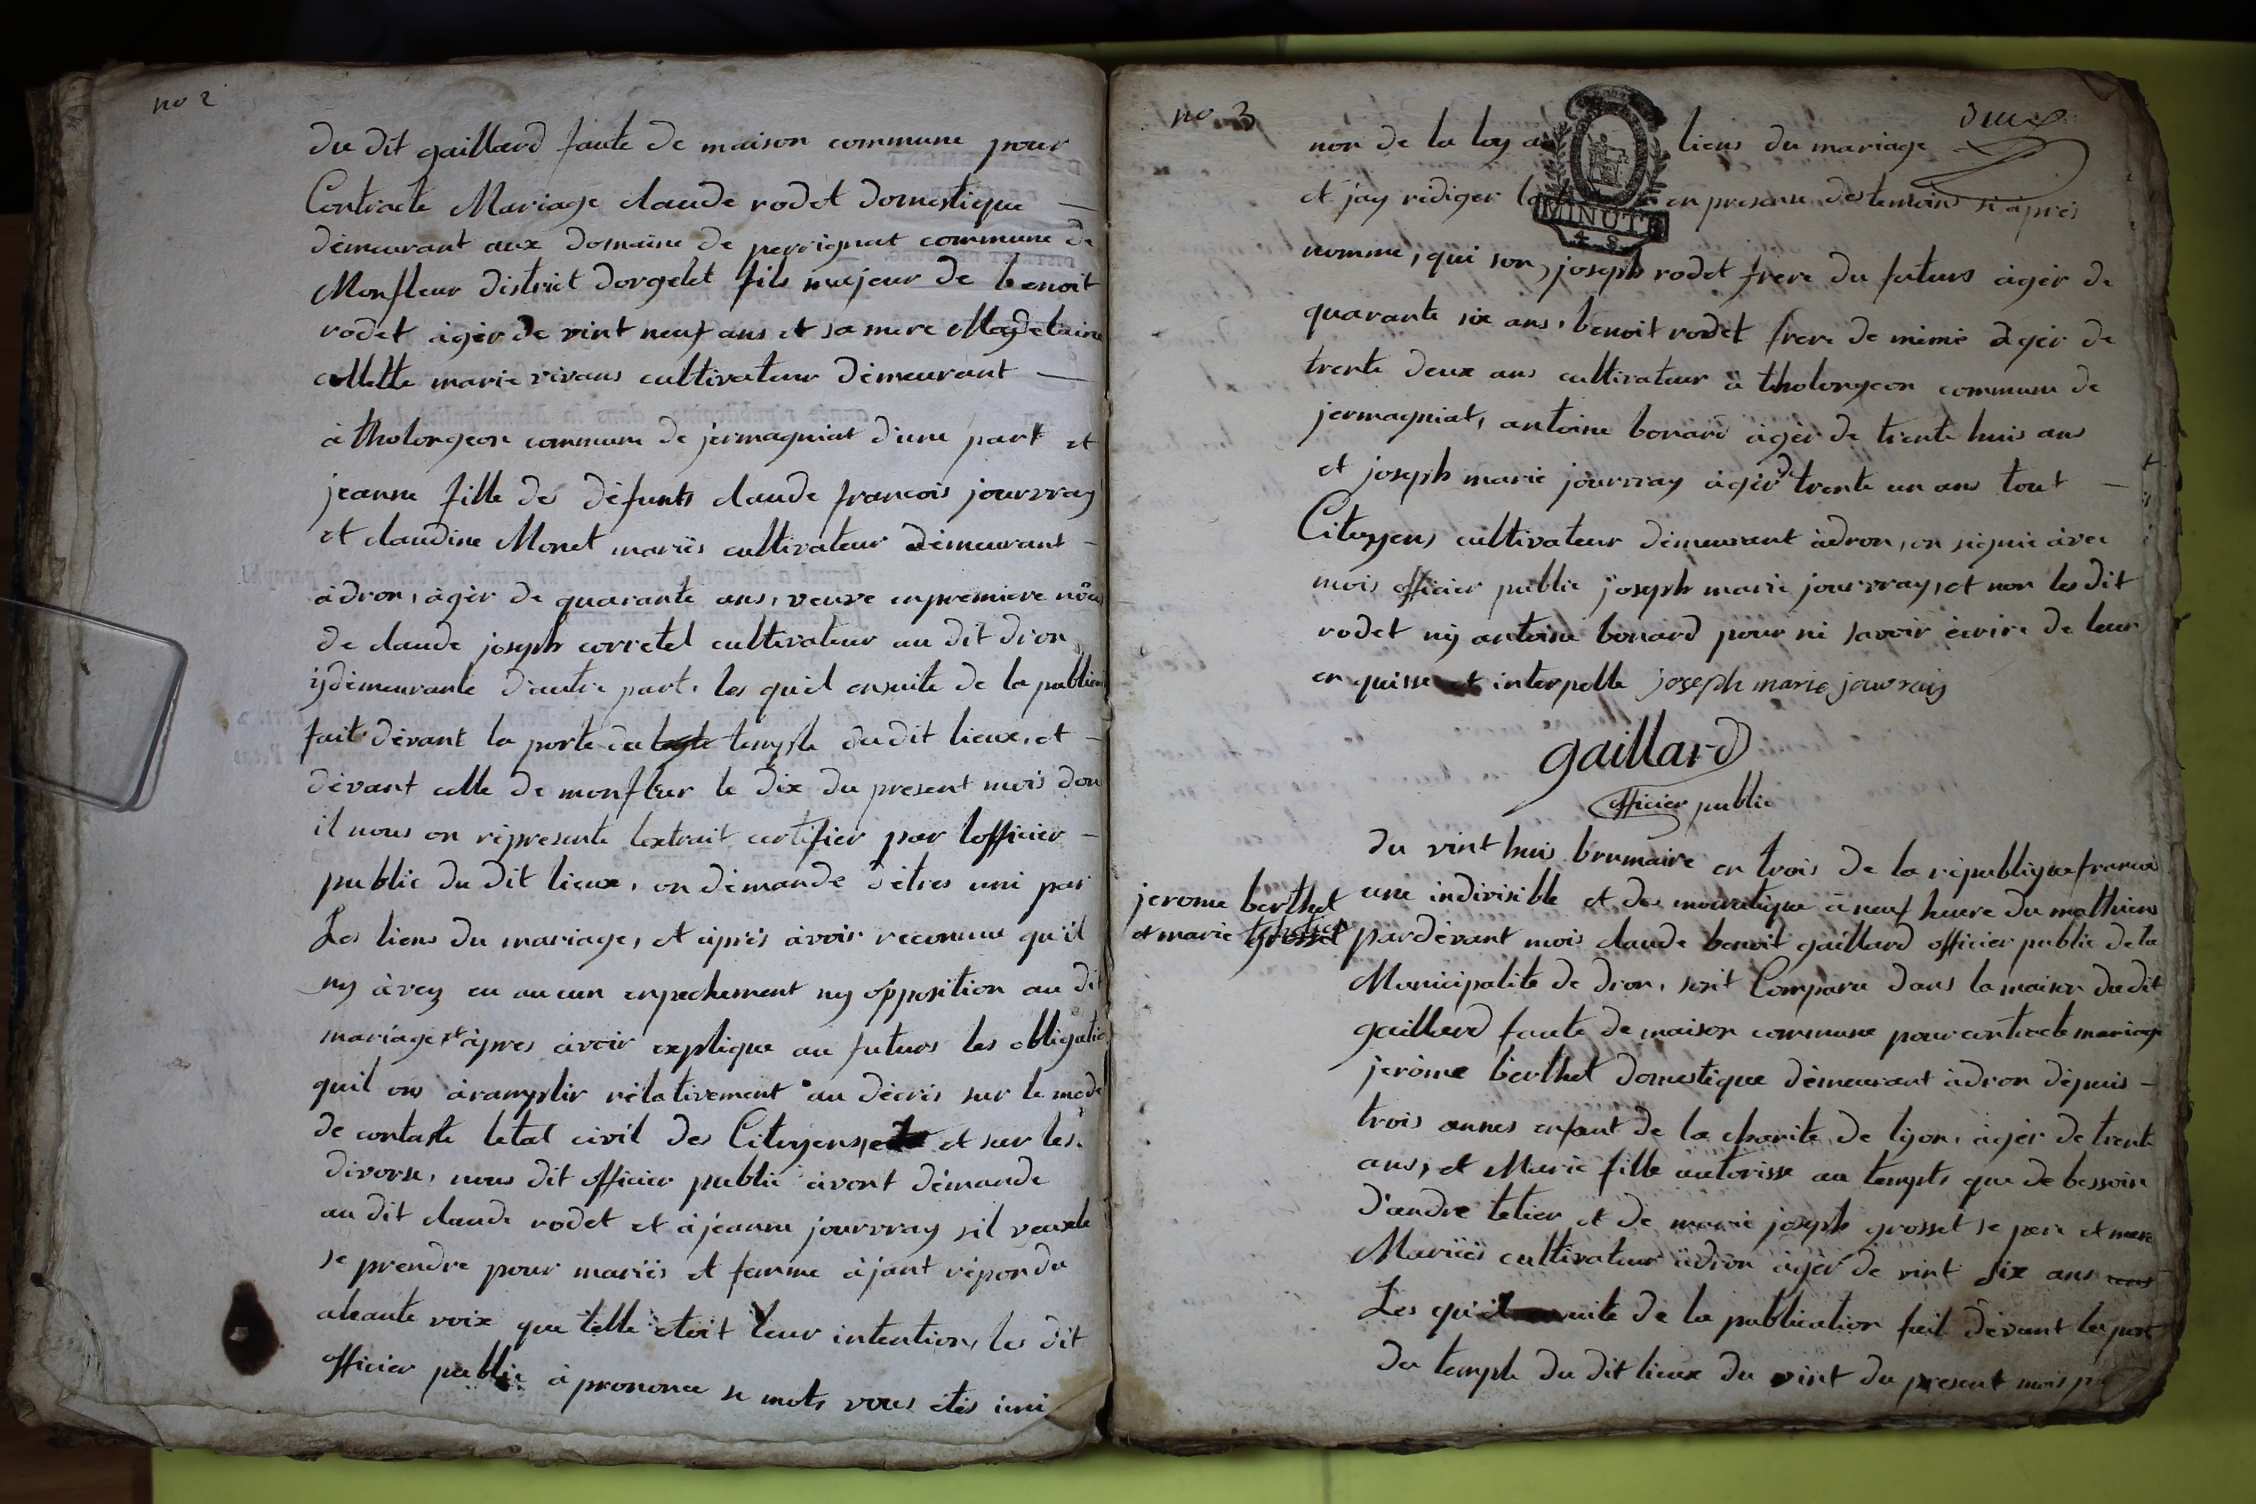 no 2
du dit gaillard faute de maison commune pour
Contracte Mariage claude rodet domestique —
démeurant aux domaine de perrignat commune de
Monfleur district dorgelet fils majeur de benoit
rodet àgér de vint neuf ans et sa mere Magdelaine
collette marie vivans cultivateur démeurant —
à tholongeon commune de jermagniat d'une part et
jeanne fille des défunts claude francois jourvray
et claudine Monet mariés cultivateur démeurant –
àdron, àgér de quarante ans, veuve enpremiere nôce
de claude joseph corretel cultivateur au dit dron
ÿdémeurante d'autre part, les quil ensuite de la publica
fait dévant la porte du temple du dit lieux, et –
dévant celle de monfleur le dix du present mois don
il nous on répresente lextrait certifier par lofficier –
public du dit lieux, on démande détres uni par
Les liens du mariage, et àprés àvoir reconnue qu'il
ny àvez eu aucun enpechement ny opposition au di
mariage et àpres àvoir explique au futurs les obligatio
quil ons àramplir rélativement au décrés sur le mode
de contaste letat civil des Citoyens, et sur les
divorse, nous dit officier public avont démande
au dit claude rodet et àjeanne jourvray sil veuxle
se prendre pour mariés et femme àjant répondu
ahaute voix que telle étoit leur intention, les dit
officier public à prononce se mots vous étés uni
no 3
deux
non de la loy au liens du mariage
et jay rédiger en presense des temoins si àprés
nomme, qui son, joseph rodet frere du futurs àgér de
quarante six ans, benoit rodet frere de mémé àgér de
trente deux ans cultivateur à tholongeon commune de
jermagniat, antoine bonard àgér de trente huis ans
et joseph marie jourvray àgér de trente un ans tout —
Citoyens cultivateur démeurant àdron, on signié àvec
mois officier public joseph marie jourvray, et non les dit
rodet ny antoine bonard pour ni savoir écrire de leur
en quisse et interpelle joseph marie jouvray
gaillard
officier public
du vint huis brumaire en trois de la république francai
jerome berthet
et marie tetier
une indivisible et des mocratique à neuf heure du mathiens
pardévant mois claude benoit gaillard officier public de la
Municipalite de dron, sont Comparu dans la maison du dit
gaillard faute de maison commune pour contracte mariage
jérôme berthet domestique démeurant àdron dépuis –
trois annes enfant de la charite de lyon, àgér de trente
ans, et Marie fille autorisse au tempts que de bessoin
d'andre tetier et de marie joseph grosset se pere et mere
Mariés cultivateur àdron àgér de vint six ans
Les qu'il suite de la publication fait dévant la port
du temple du dit lieux du vint du present mois
MINUTE
4. S.